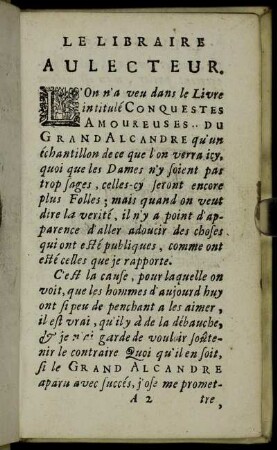 LE LIBRAIRE
AU LECTEUR.
L'On n'a veu dans le Livre
intitulé CONQUESTES
AMOUREUSES.. DU
GRAND ALCANDRE qu'un
échantillon de ce que l'on verra icy,
quoi que les Dames n'y soient par
trop sages, celles-cy seront encore
plus Folles; mais quand on veut
dire la verité, il n'y a point d'ap-
parence d'aller adoucir des choses
qui ont esté publiques, comme ont
esté celles que je rapporte.
C'est la cause, pour laquelle on
voit, que les hommes d'aujourd huy
ont si peu de penchant a les aimer,
il est vrai, qu'il y à de la débauche,
& je n'ai garde de vouloir soûte-
nir le contraire Quoi qu'il en soit,
si le GRAND ALCANDRE
aparu avec succés, j'ose me promet-
A 2 tre,